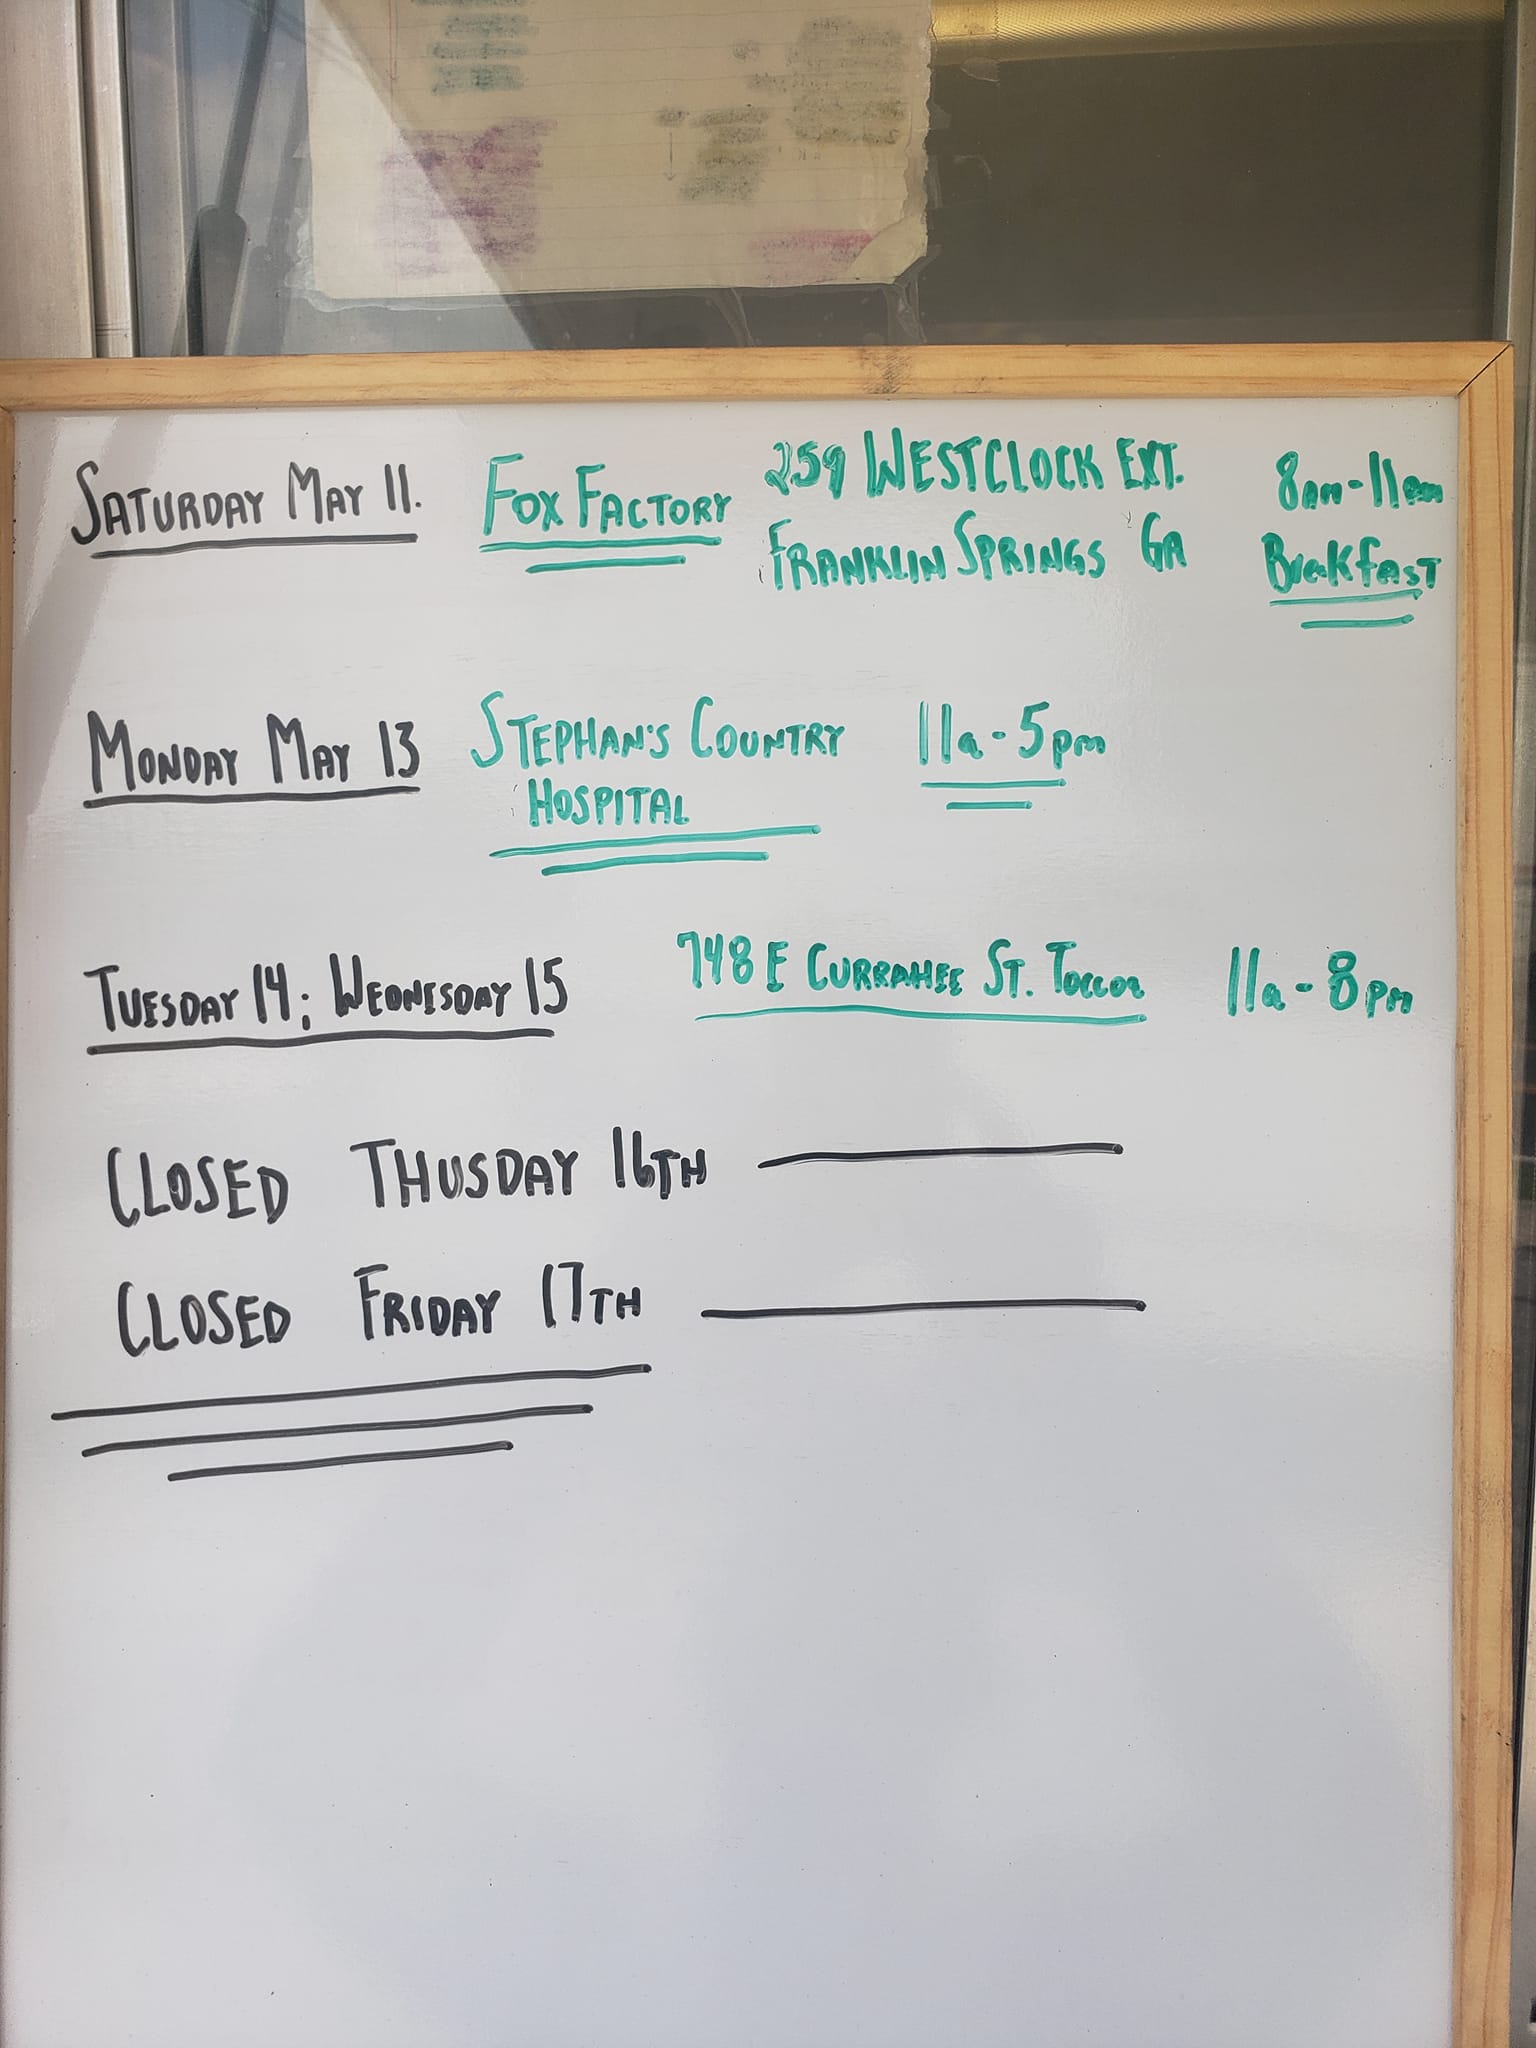 SATURDAY MAY 11. FOX FACTORY 259 WESTCLOCK EXT. 8am-11am
FRANKLIN SPRINGS GA Breakfast
MONDAY MAY 13 STEPHAN'S COUNTRY 11a-5pm
HOSPITAL
TUESDAY 14; WEDNESDAY 15 748 E CURRAHEE ST. TOCCOA 11a-8pm
CLOSED THUSDAY 16TH
CLOSED FRIDAY 17TH